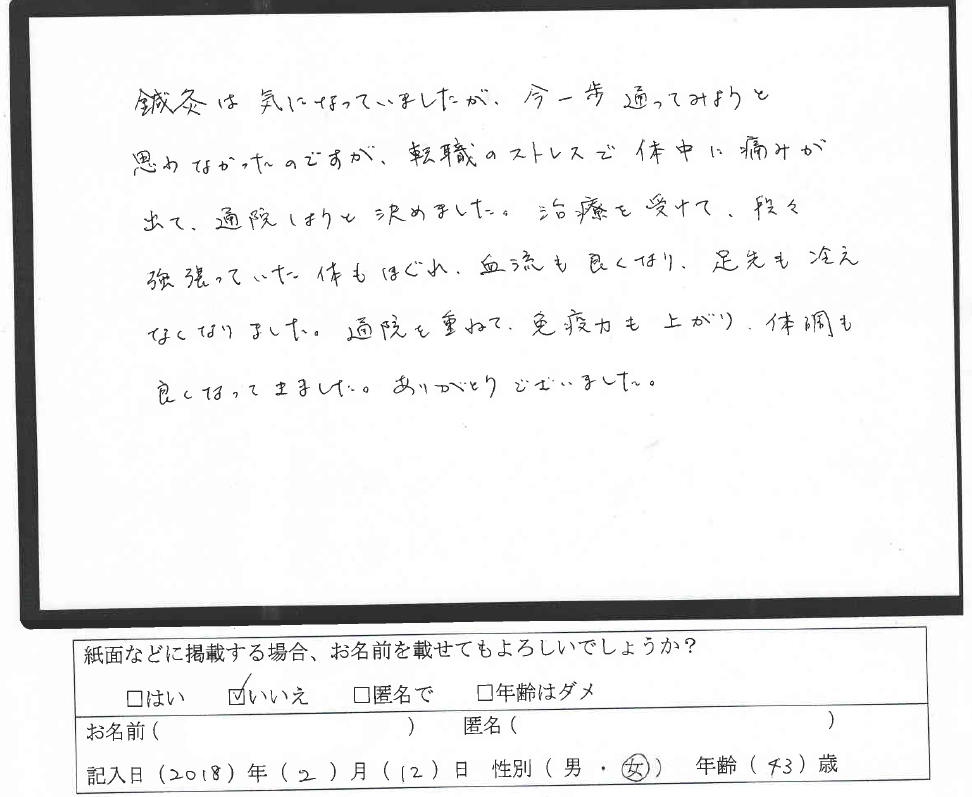 鍼灸は気になっていましたが、今一歩通ってみようと
思わなかったのですが、転職のストレスで体中に痛みが
出て、通院しようと決めました。治療を受けて、段々
強張っていた体もほぐれ、血流も良くなり、足先も冷え
なくなりました。通院を重ねて、免疫力も上がり、体調も
良くなってきました。ありがとうございました。
紙面などに掲載する場合、お名前を載せてもよろしいでしょうか？
□はい ☑いいえ □匿名で □年齢はダメ
お名前（ ） 匿名（ ）
記入日（2018）年（2）月（12）日 性別（男・女） 年齢（43）歳